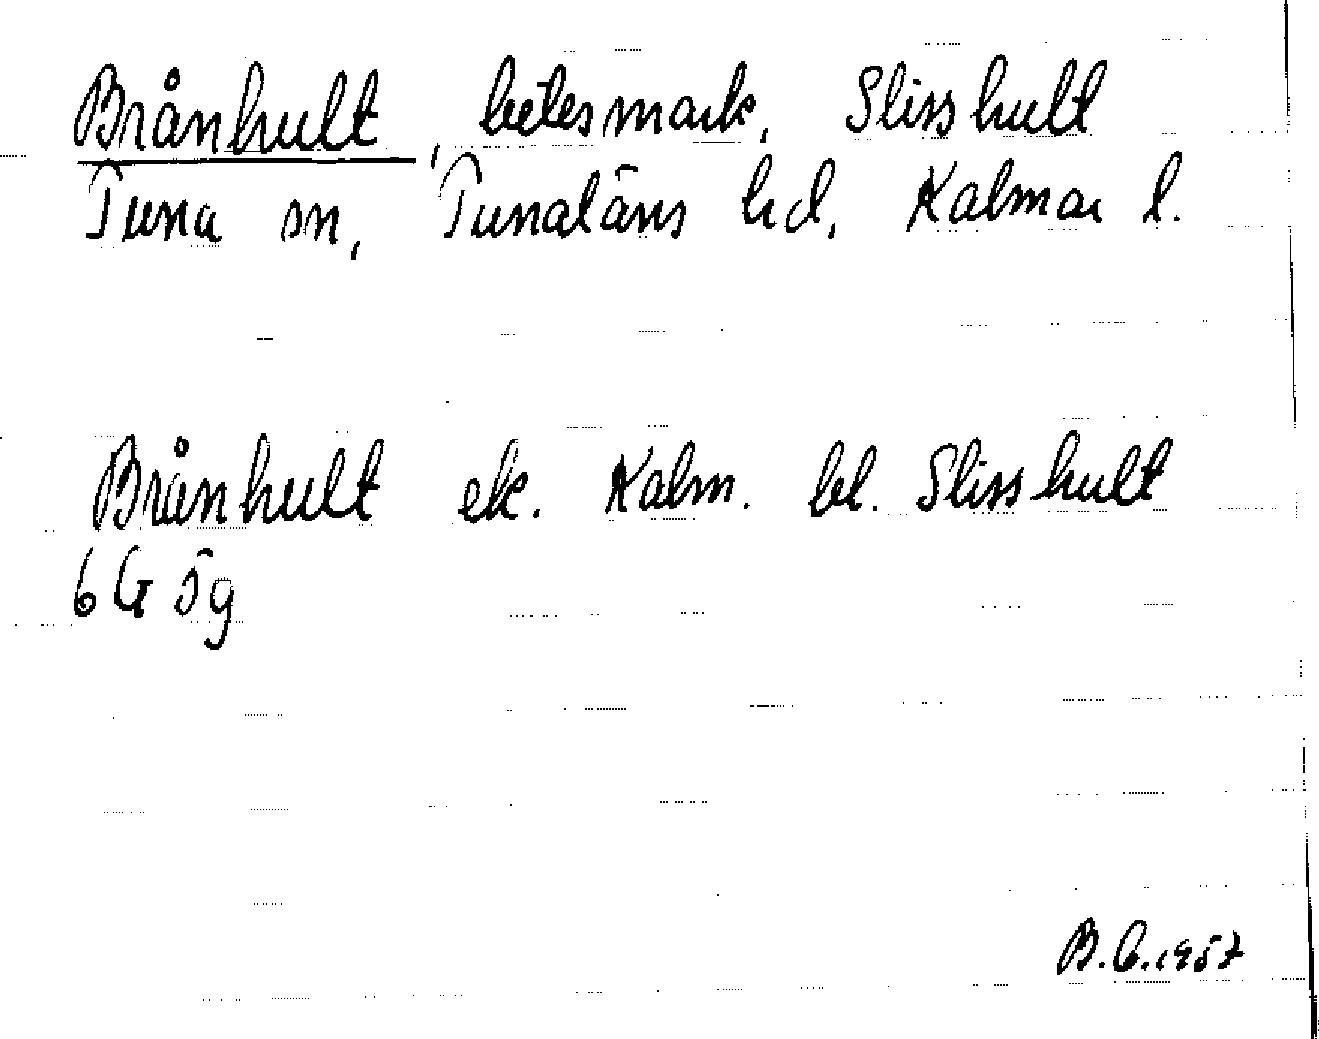 Brånhult, betesmark, Slisshult
Tuna sn, Tunaläns hd, Kalmar l.
Brånhult ek. Kalm. bl. Slisshult
6G 5g
B.C. 1957